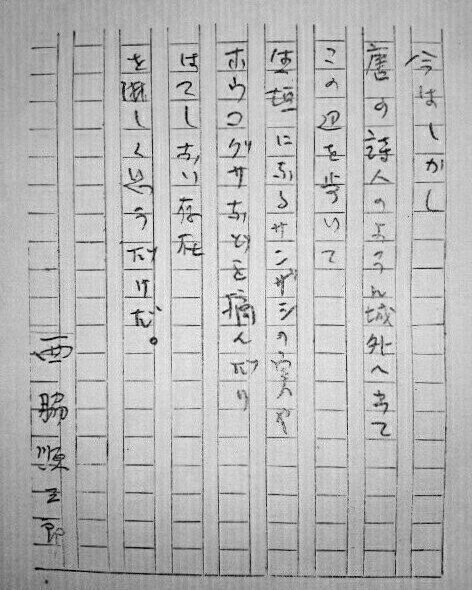 今はしかし
唐の詩人のように城外へ出て
この辺を歩いて
生垣になるサンザシの実や
ホウコグサなどを摘んだり
はてしない存在
を淋しく思うだけだ。
西脇順三郎